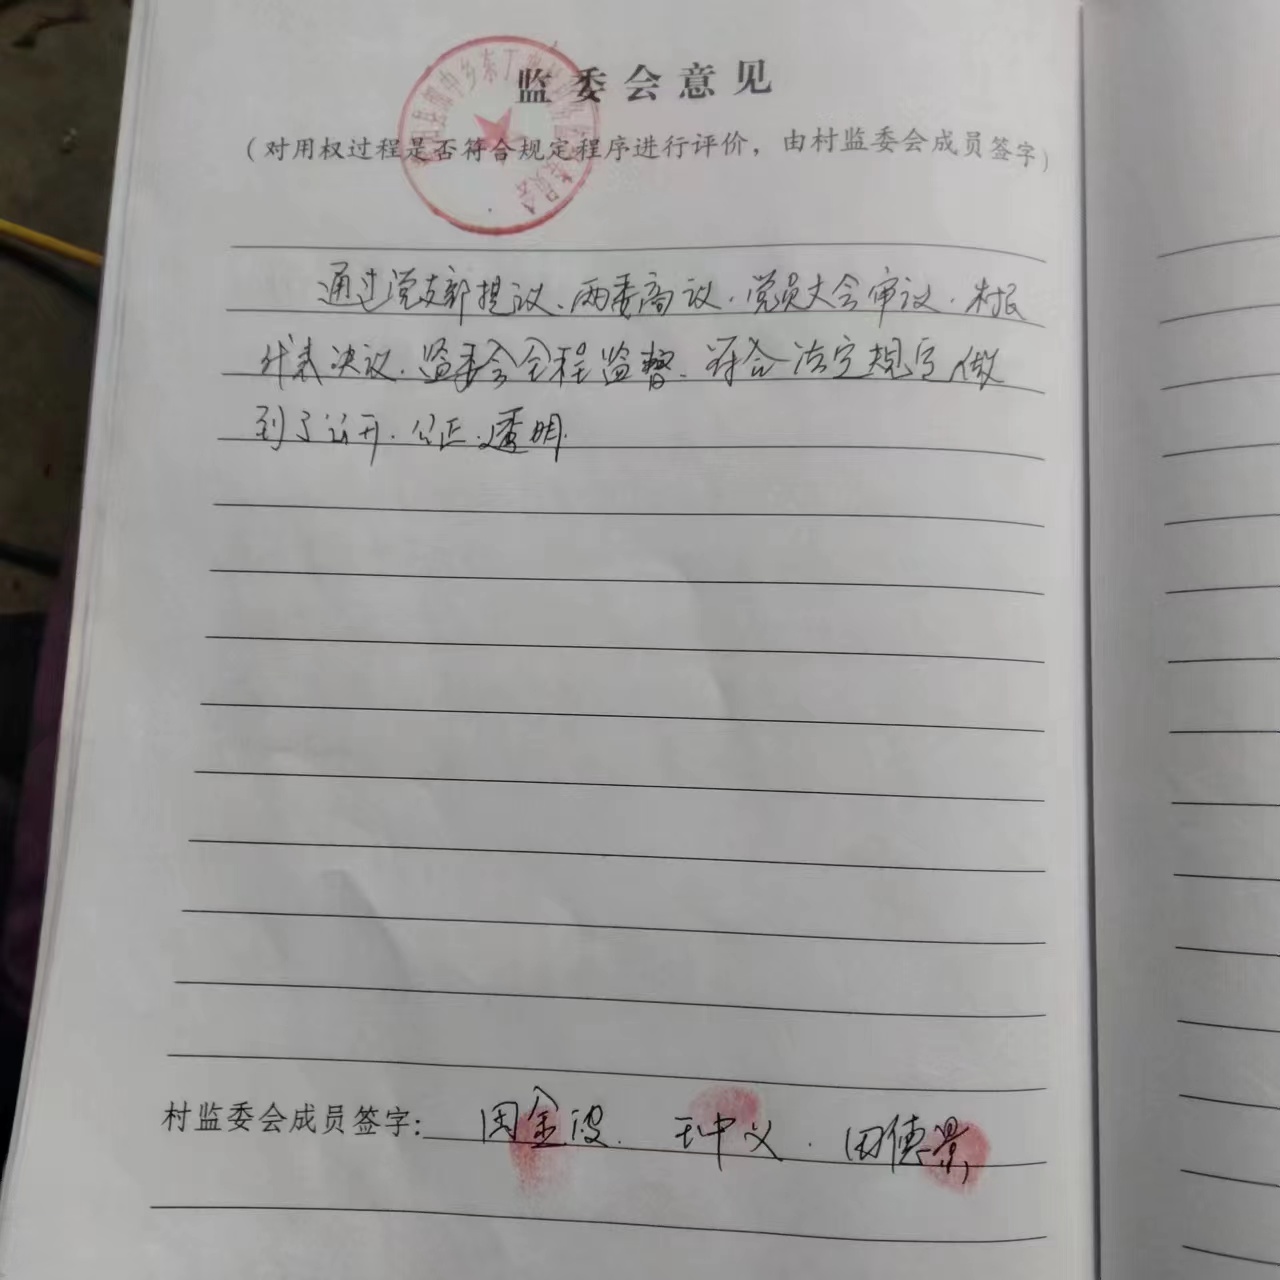 监委会意见
（对用权过程是否符合规定程序进行评价，由村监委会成员签字）
通过党支部提议、两委商议、党员大会审议、村民
代表决议、监委会全程监督、符合法定规定做
到了公开、公正、透明.
村监委会成员签字：田金波. 王中义. 田德景